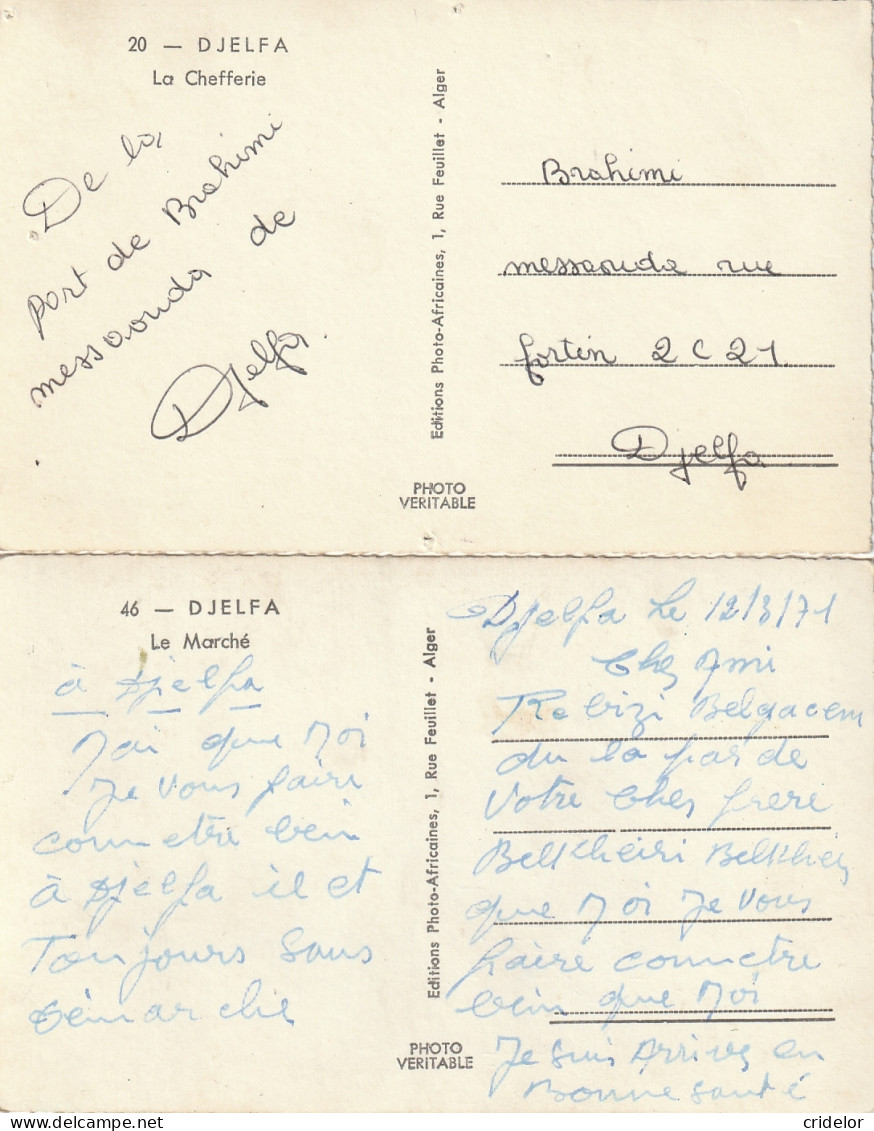 20 — DJELFA
La Chefferie
De la
part de Brahimi
messaouda de
Djelfa
Editions Photo-Africaines, 1, Rue Feuillet - Alger
PHOTO
VERITABLE
Brahimi
messaouda rue
fortin 2 C 21
Djelfa
46 — DJELFA
Le Marché
à Djelfa
Mai que Moi
Je vous faire
connetre bein
à Djelfa il et
Toujours sans
Editions Photo-Africaines, 1, Rue Feuillet - Alger
PHOTO
VERITABLE
Djelfa le 12/3/71
Cher Ami
Rebizi Belgacem
du la par de
Votre Cher frere
Belkheiri Belkheir
que Moi Je vous
faire connetre
bein que Moi
Je suis Arrivez en
Bonne santé
© cridelor